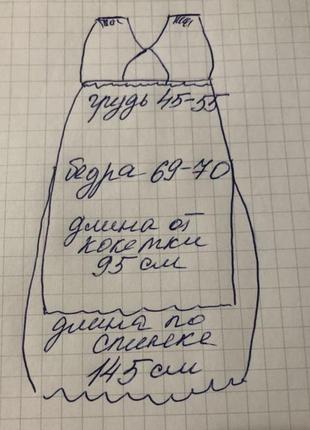 грудь 45-55
бедра 69-70
длина от
кокетки
95 см
длина по
спинке
145 см